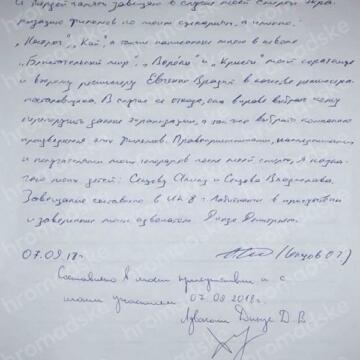 и твердой памяти завещаю в случае моей смерти экра-
низацию фильмов по моим сценариям, а именно:
"Носорог", "Кай", а также написанных мною в неволе
"Белекательный мир", "Воронка" и "Кристи" моей соратнице
и второму режиссеру Евгении Врадий в качестве режиссера-
постановщика. В случае ее отказа, она вправе выбрать кому
перепоручить данные экранизации, а так же выбрать компанию
продюсеров этих фильмов. Правоприемниками, наследниками
и получателями моих гонораров после моей смерти, я назна-
чаю моих детей: Сенцову Алину и Сенцова Владислава.
Завещание составлено в ИК 8 г. Лабытнанги в присутствии
и заверением моим адвокатом Динзе Дмитрием.
07.09.18 г. (Сенцов О Г)
Составлено в моем присутствии и с
моим участием 07.08.2018 г.
Адвокат Динзе Д.В
hromadske